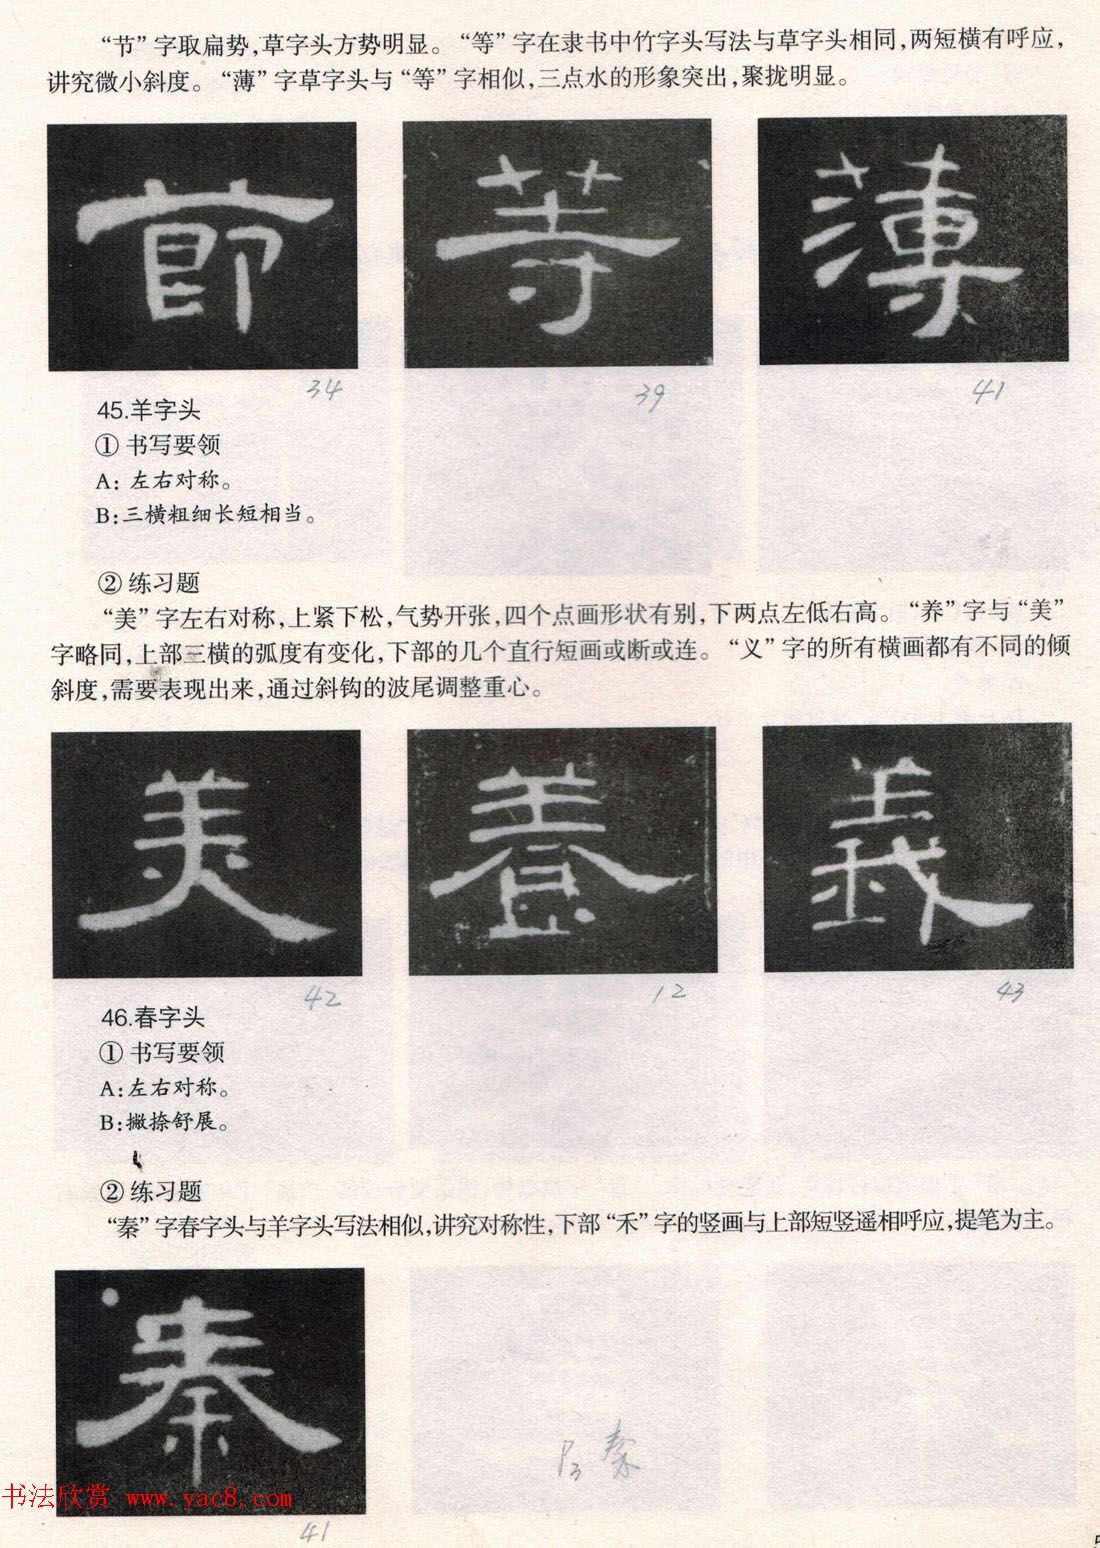 “节”字取扁势,草字头方势明显。“等”字在隶书中竹字头写法与草字头相同,两短横有呼应,
讲究微小斜度。“薄”字草字头与“等”字相似,三点水的形象突出,聚拢明显。
節 等 薄
34 39 41
45.羊字头
① 书写要领
A: 左右对称。
B:三横粗细长短相当。
② 练习题
“美”字左右对称,上紧下松,气势开张,四个点画形状有别,下两点左低右高。“养”字与“美”
字略同,上部三横的弧度有变化,下部的几个直行短画或断或连。“义”字的所有横画都有不同的倾
斜度,需要表现出来,通过斜钩的波尾调整重心。
美 養 義
42 12 43
46.春字头
① 书写要领
A:左右对称。
B:撇捺舒展。
② 练习题
“秦”字春字头与羊字头写法相似,讲究对称性,下部“禾”字的竖画与上部短竖遥相呼应,提笔为主。
秦
书法欣赏 www.yac8.com
41